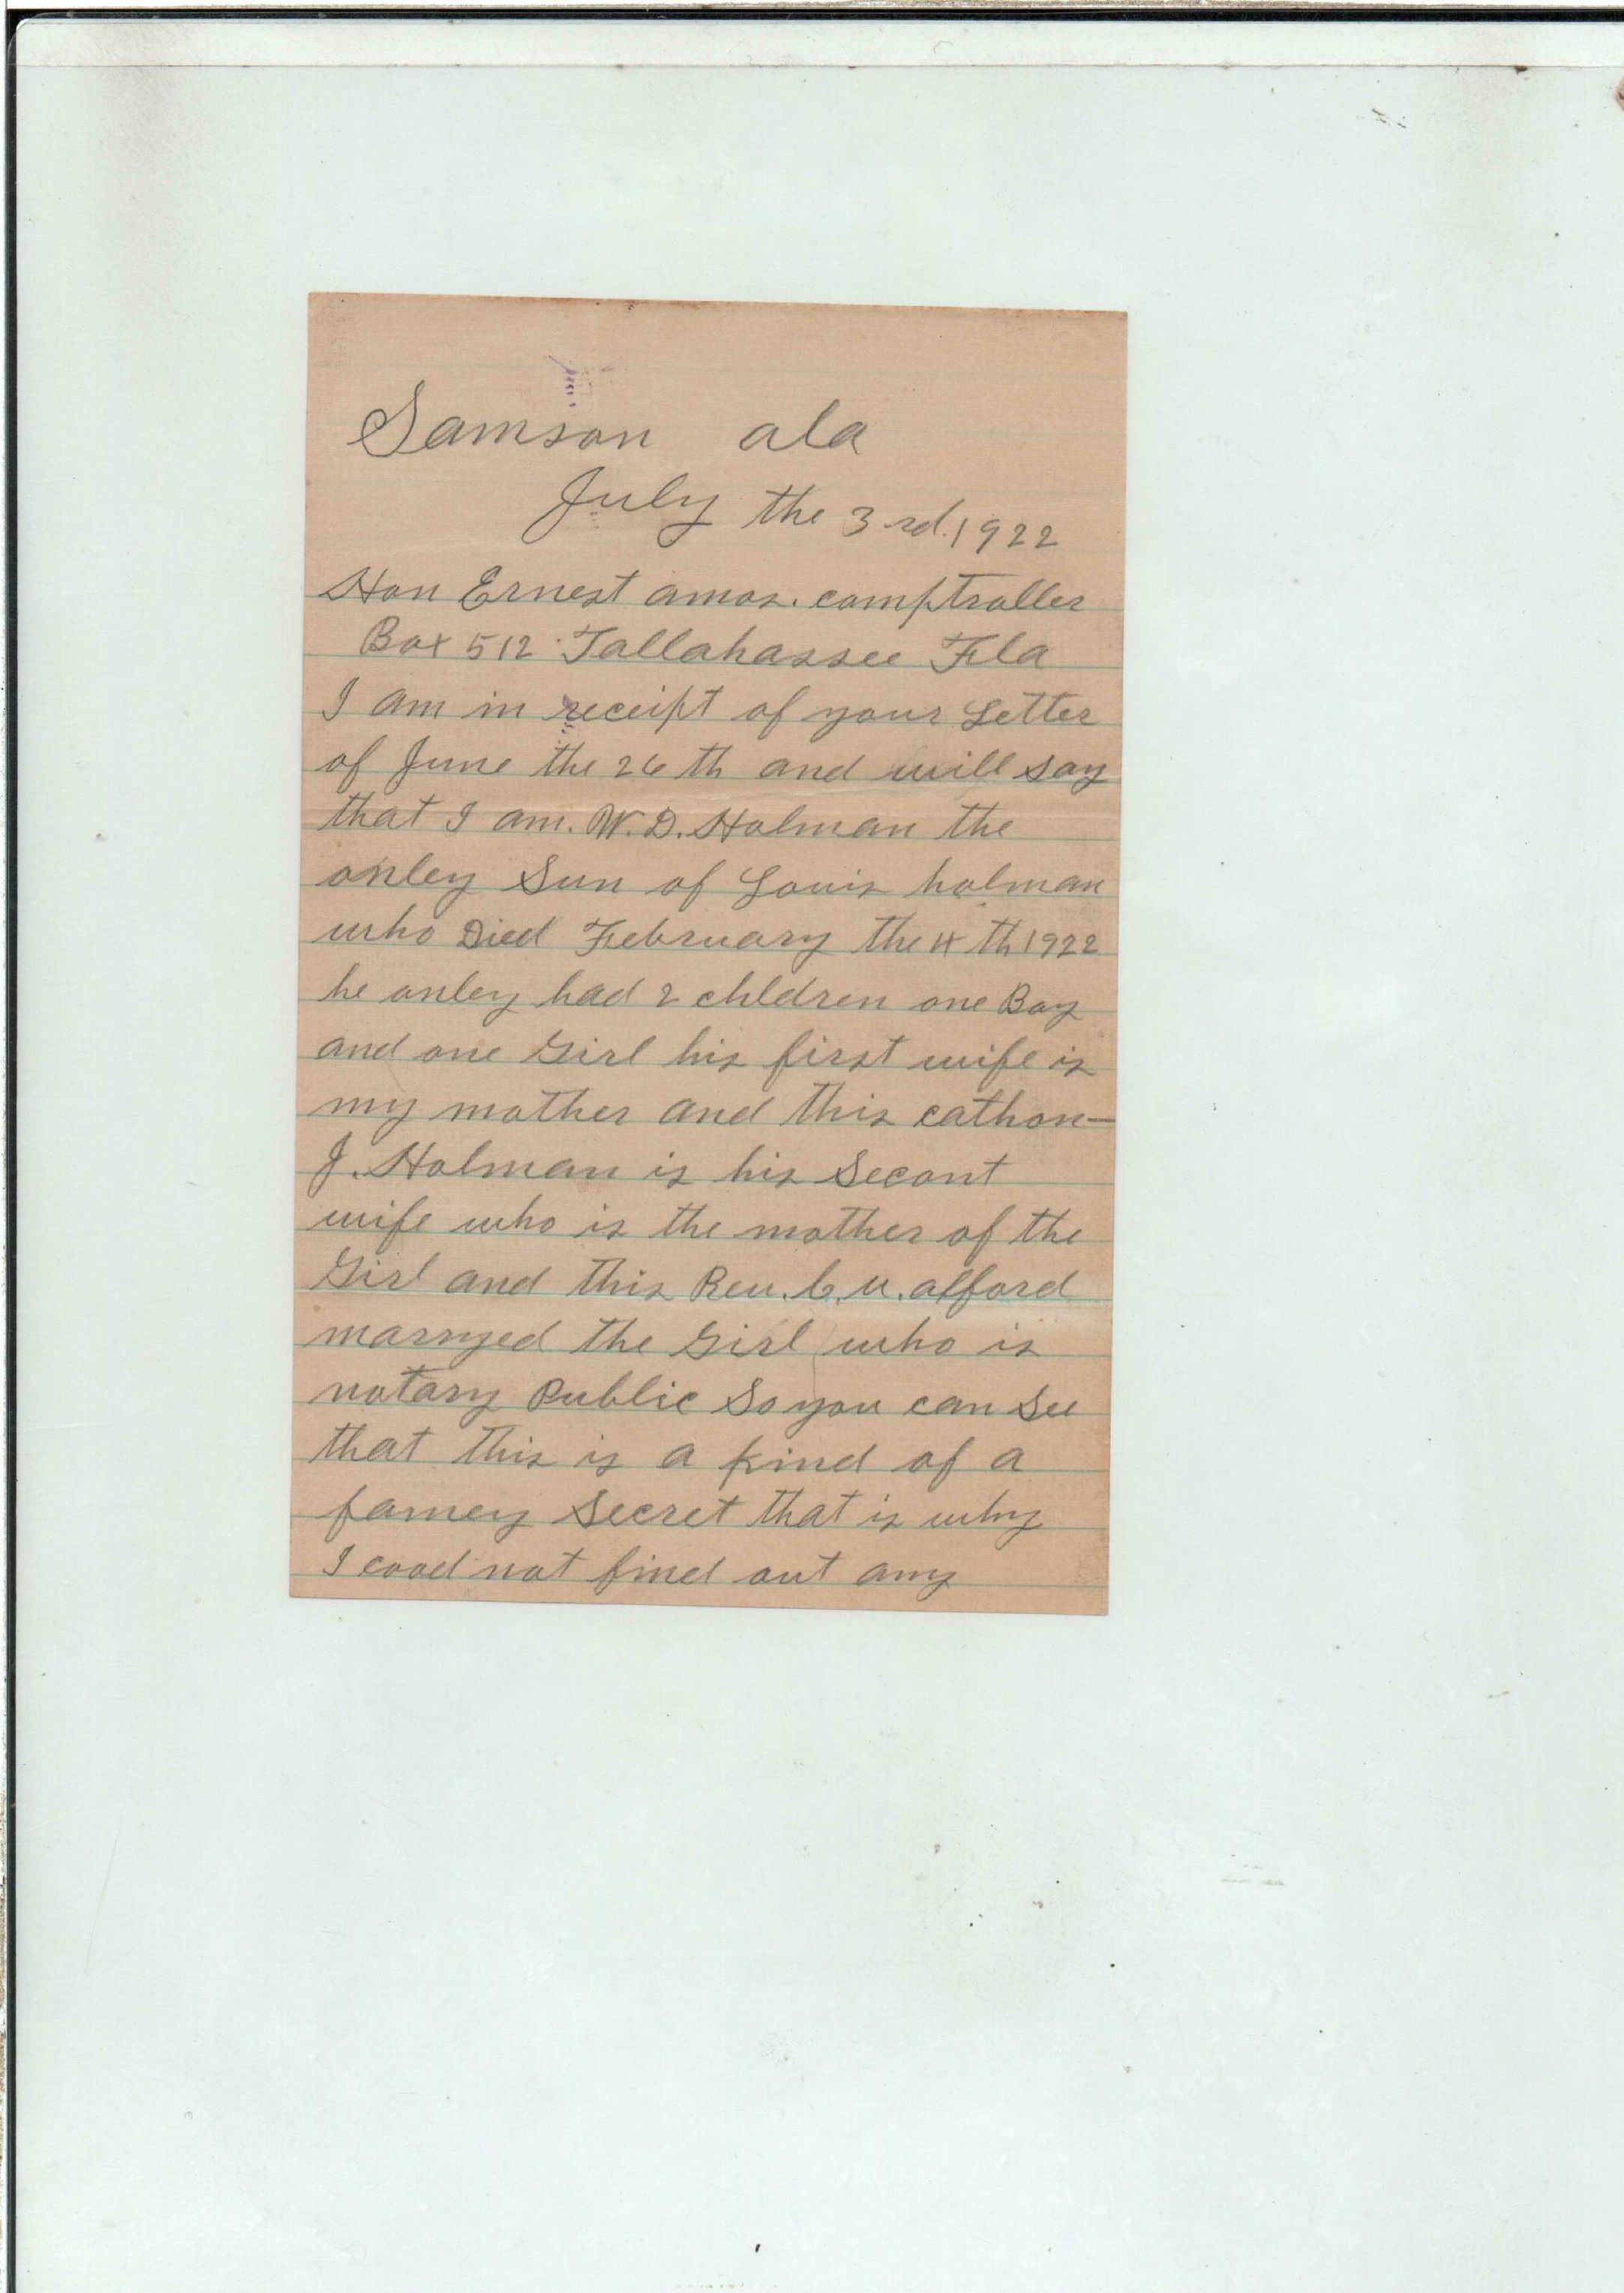 Samson ala
July the 3rd. 1922
Hon Ernest amos. comptroller
Box 512 Tallahassee Fla
I am in receipt of your Letter
of June the 26th and will say
that I am. W. D. Holman the
onley Sun of Louis holman
who Died February the 4th 1922
he onley had 2 children one Boy
and one Girl his first wife is
my mother and this cathon-
J. Holman is his Secont
wife who is the mother of the
Girl and this Rev. C. U. alford
marryed the Girl who is
notary Public So you can See
that this is a kind of a
famey Secret that is why
I cood not find out any